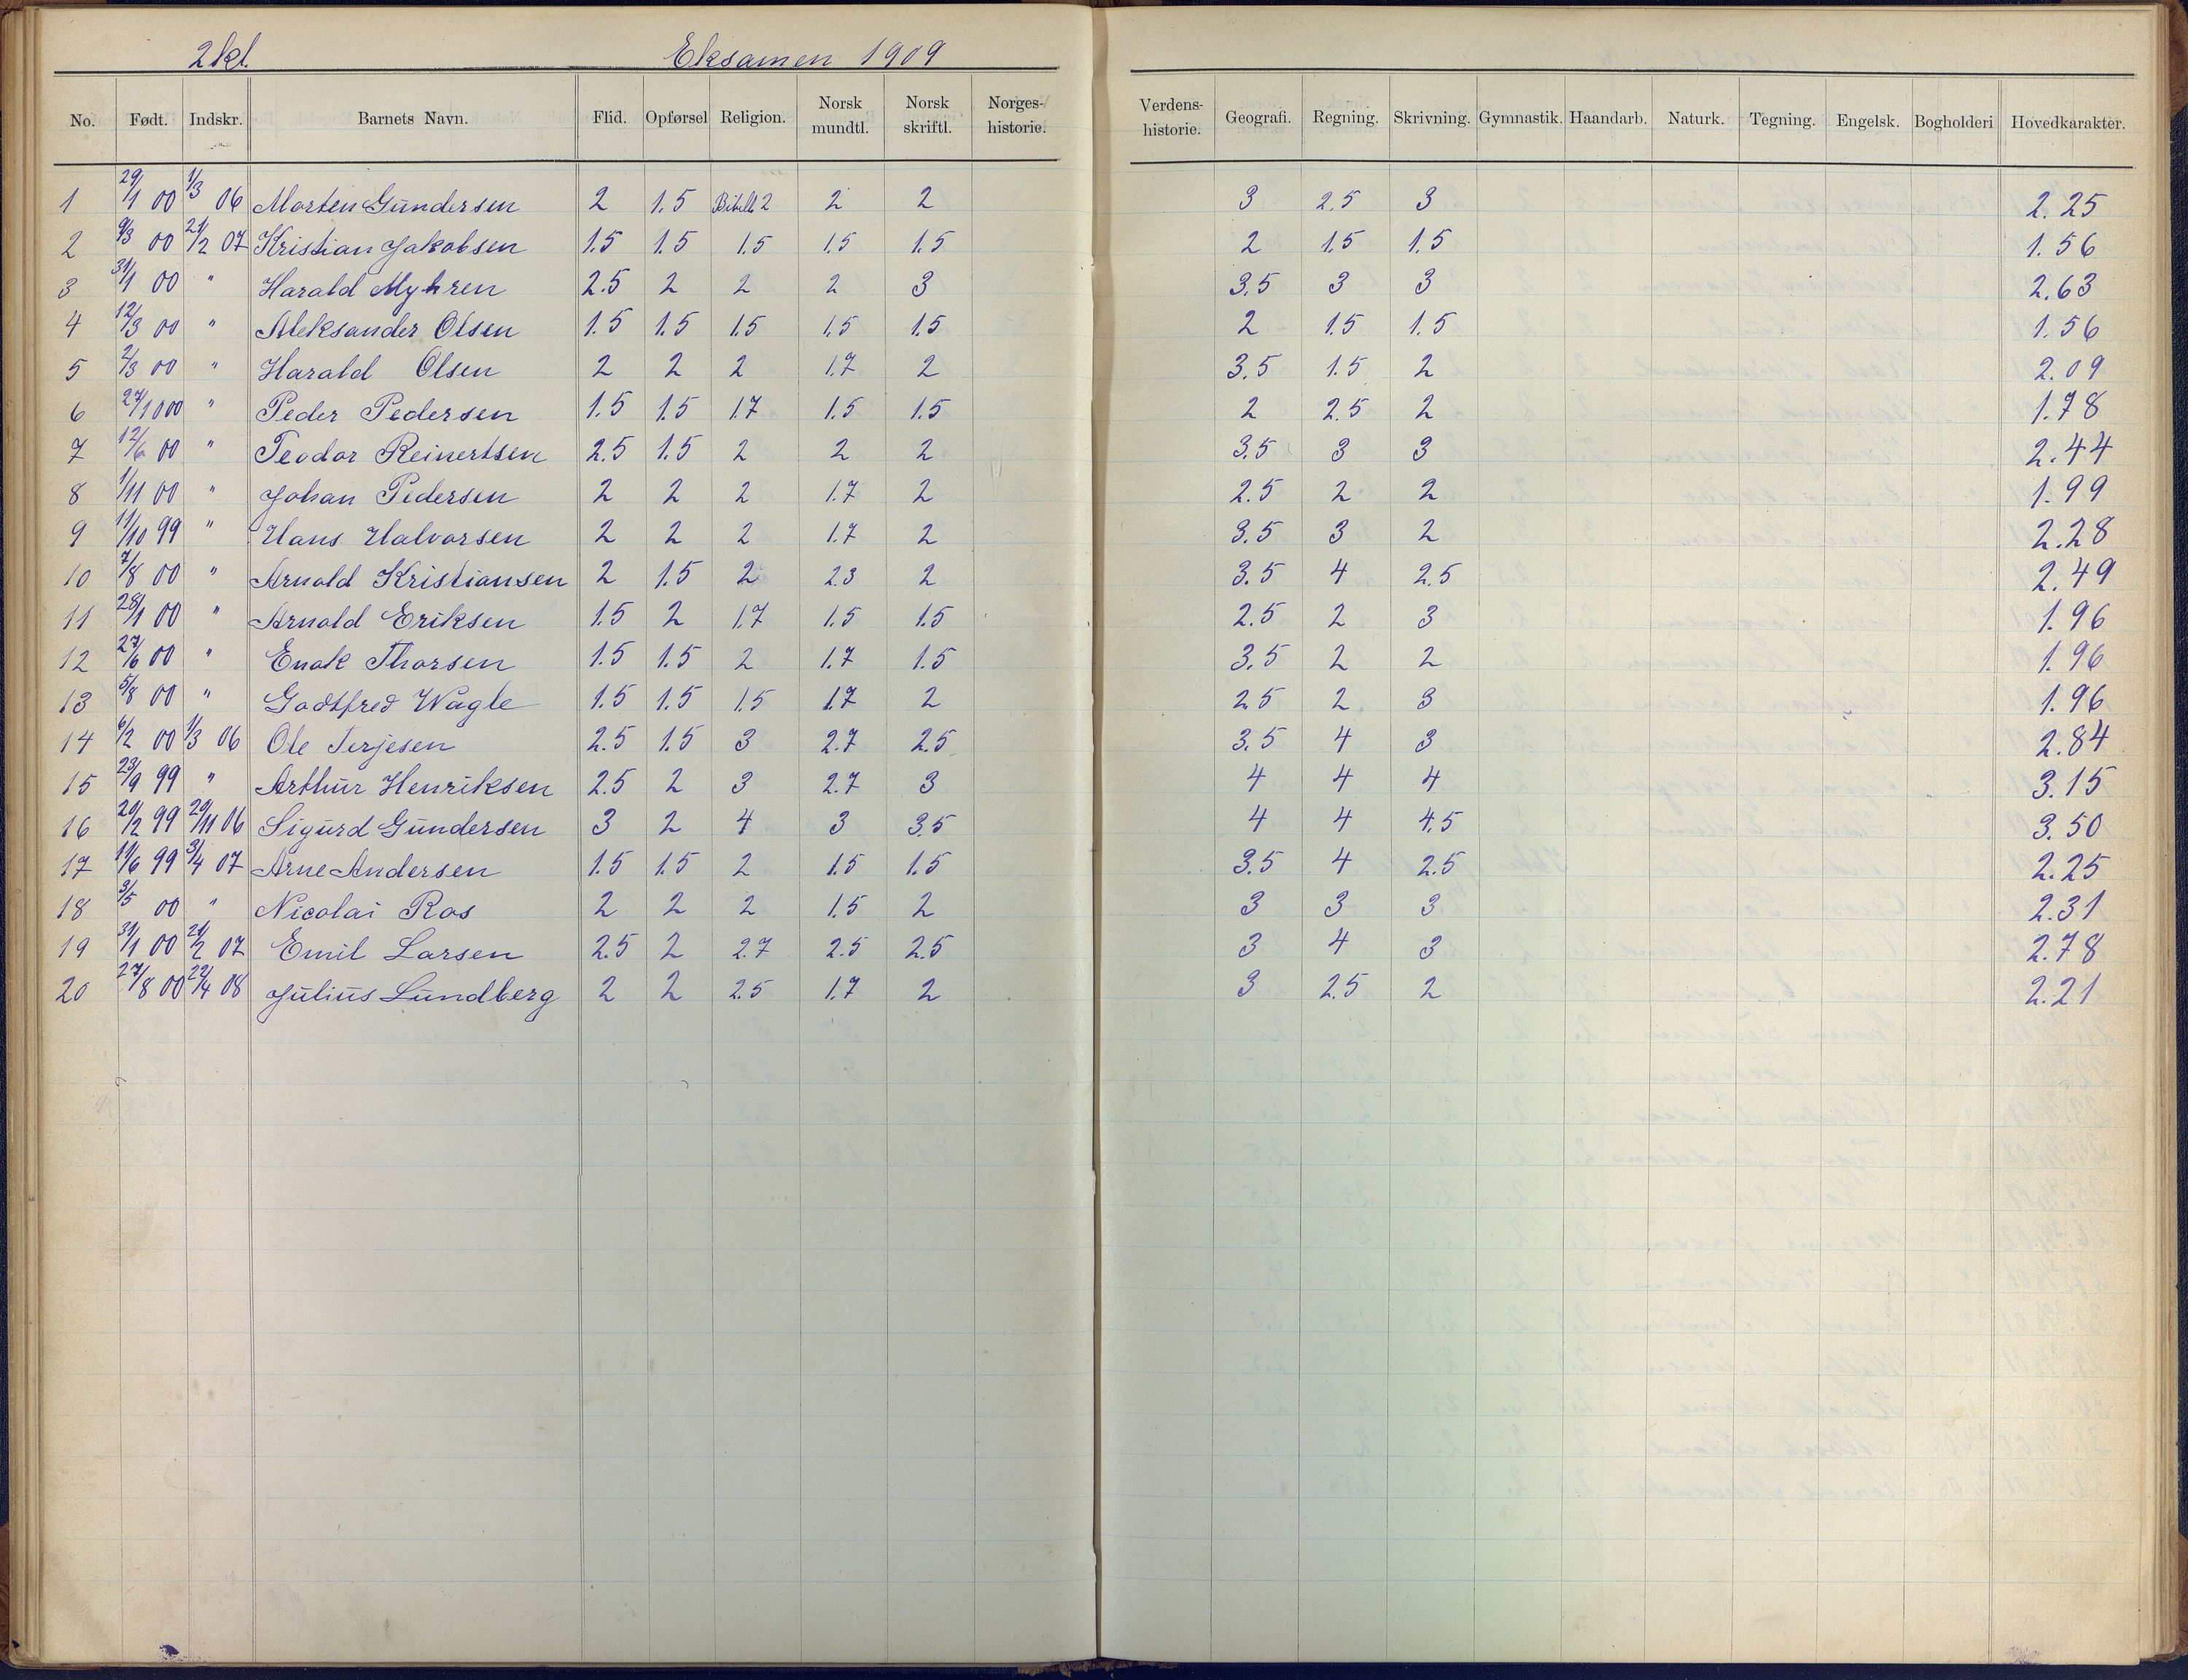 2 kl. Eksamen 1909
No. Født. Indskr. Barnets Navn. Flid. Opførsel Religion. Norsk mundtl. Norsk skriftl. Norges-historie. Verdens-historie. Geografi. Regning. Skrivning. Gymnastik. Haandarb. Naturk. Tegning. Engelsk. Bogholderi Hovedkarakter.
1 29/1 00 1/3 06 Morten Gundersen 2 1.5 Bibelh 2 2 2 3 2.5 3 2.25
2 9/3 00 21/2 07 Kristian Jakobsen 1.5 1.5 1.5 1.5 1.5 2 1.5 1.5 1.56
3 31/1 00 " Harald Myhren 2.5 2 2 2 3 3.5 3 3 2.63
4 12/3 00 " Aleksander Olsen 1.5 1.5 1.5 1.5 1.5 2 1.5 1.5 1.56
5 2/3 00 " Harald Olsen 2 2 2 1.7 2 3.5 1.5 2 2.09
6 27/10 00 " Peder Pedersen 1.5 1.5 1.7 1.5 1.5 2 2.5 2 1.78
7 12/6 00 " Teodor Reinertsen 2.5 1.5 2 2 2 3.5 3 3 2.44
8 1/11 00 " Johan Pedersen 2 2 2 1.7 2 2.5 2 2 1.99
9 11/10 99 " Hans Halvorsen 2 2 2 1.7 2 3.5 3 2 2.28
10 7/8 00 " Arnold Kristiansen 2 1.5 2 2.3 2 3.5 4 2.5 2.49
11 28/1 00 " Arnold Eriksen 1.5 2 1.7 1.5 1.5 2.5 2 3 1.96
12 27/6 00 " Enok Thorsen 1.5 1.5 2 1.7 1.5 3.5 2 2 1.96
13 5/8 00 " Godtfred Wågle 1.5 1.5 1.5 1.7 2 2.5 2 3 1.96
14 6/2 00 1/3 06 Ole Terjesen 2.5 1.5 3 2.7 2.5 3.5 4 3 2.84
15 23/9 99 " Arthur Henriksen 2.5 2 3 2.7 3 4 4 4 3.15
16 20/2 99 29/11 06 Sigurd Gundersen 3 2 4 3 3.5 4 4 4.5 3.50
17 19/6 99 3/4 07 Arne Andersen 1.5 1.5 2 1.5 1.5 3.5 4 2.5 2.25
18 3/5 00 " Nicolai Ros 2 2 2 1.5 2 3 3 3 2.31
19 31/1 00 21/2 07 Emil Larsen 2.5 2 2.7 2.5 2.5 3 4 3 2.78
20 27/8 00 22/4 08 Julius Lundberg 2 2 2.5 1.7 2 3 2.5 2 2.21